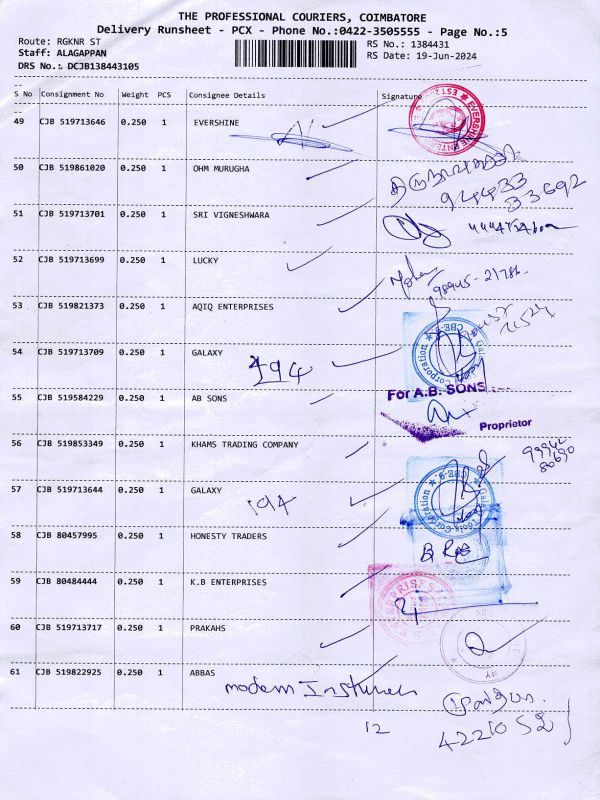 THE PROFESSIONAL COURIERS, COIMBATORE
Delivery Runsheet - PCX - Phone No.:0422-3505555 - Page No.:5
Route: RGKNR ST RS No.: 1384431
Staff: ALAGAPPAN RS Date: 19-Jun-2024
DRS No.: DCJB138443105
S No Consignment No Weight PCS Consignee Details Signature
49 CJB 519713646 0.250 1 EVERSHINE
EVERSHINE
50 CJB 519861020 0.250 1 OHM MURUGHA
94433
33692
51 CJB 519713701 0.250 1 SRI VIGNESHWARA
52 CJB 519713699 0.250 1 LUCKY
98945-21786
53 CJB 519821373 0.250 1 AQIQ ENTERPRISES
54 CJB 519713709 0.250 1 GALAXY
194
Galaxy Tools Corporation ★ CBE-9. ★
55 CJB 519584229 0.250 1 AB SONS
For A.B. SONS
Proprietor
56 CJB 519853349 0.250 1 KHAMS TRADING COMPANY
99942
80690
57 CJB 519713644 0.250 1 GALAXY
194
Galaxy Tools Corporation ★ CBE-9. ★
58 CJB 80457995 0.250 1 HONESTY TRADERS
59 CJB 80484444 0.250 1 K.B ENTERPRISES
60 CJB 519713717 0.250 1 PRAKAHS
61 CJB 519822925 0.250 1 ABBAS
modern
12
4221052